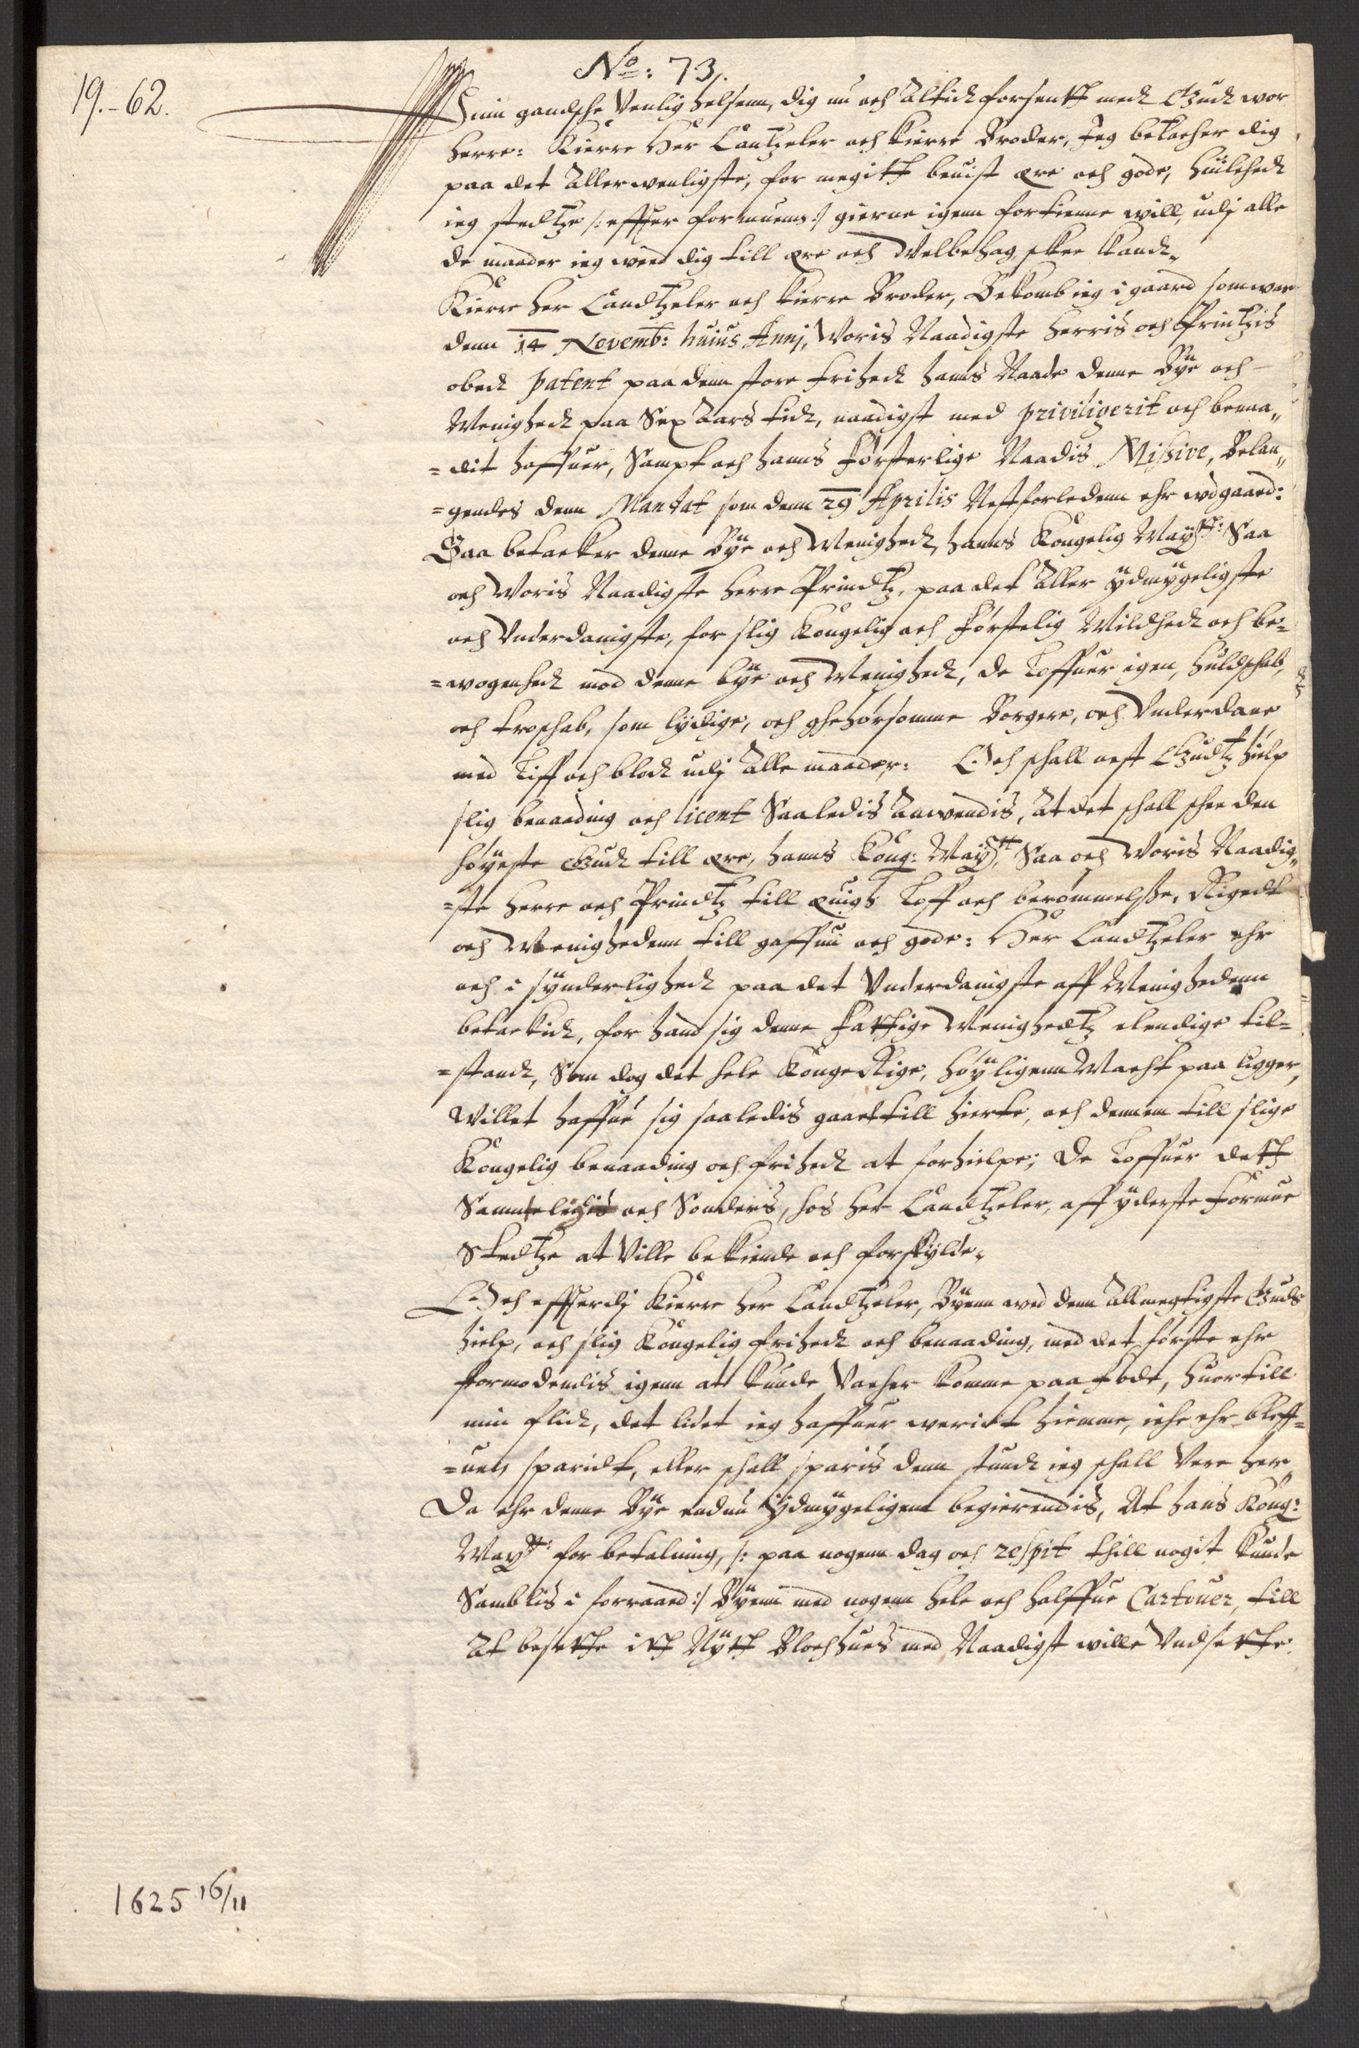 No: 73.
19.-62.
Minn gandsche Venlig helsenn, dig nu och Altid forsentt med Gud wor
Herre: Kierre Her Cantzeler och kierre Broder, Jeg betacher dig
paa det Allerwenligste, for megitt beuist ære och gode, huilched
ieg stedtze /: effter formuenn :/ gierne igenn fortienne will, udj alle
de maader ieg weed dig till ære och Velbehag skee kand.
Kierre Her Candtzeler och kierre Broder, Bekomb ieg i gaard som war
denn 14 Novemb: huius Annj, Woris Naadigste Herris och Printzis
obed patent paa denn store frihed hanns Naade denne Bye och
Menighed paa Sex Aars tid, naadigst med priviligerit och benaa„
=dit haffuer, Sampt och hanns Førsterlige Naadis Missive, Belan„
=gendes denn Mantat som denn 29 Aprilis Nestforledenn ehr wdgaaed:
Saa betacker denne Bye och Menighed, hanns Kongelig Maytt: Saa
och Woris Naadigste Herre Prindtz, paa det Aller ydmygeligste
och Vnderdanigste, for slig Kongelig och Førstelig Mildhed och be=
=wogenhed mod denne bye och Menighed, de Loffuer igen, huldschab,
och troschab, som lydige, och ghehorsomme Borgere, och Vnderdane
med Liff och blod udj Alle maader: Och schall nest Gudtz hielp
slig benaading och licent Saaledis Anwendis, At det schall schee den
høyeste Gud till ære, hanns Kong: Maytt, Saa och Woris Naadig„
=ste Herre och Prindtz till euigh Loff och berømmelsse, Rigedt
och Menighedenn till gaffnn och gode: Her Candtzeler ehr
och i synderlighed paa det Vnderdanigste aff Menighedenn
betackid, for hand sig denne fattige Menighedtz elendige til=
=stand, Som dog det hele KongeRige, høyligenn Macht paa ligger,
Willet haffue sig saaledis gaaet till hierte, och dennem till slige
Kongelig benaading och frihed at forhielpe; De Loffuer dett
Samteligis och Sonders, hos Her Candtzeler, aff yderste formue
Stedtze at Ville bekiende och forskylde.
Och effterdj Kierre Her Candtzeler, Byenn wed denn Allmegtigste Guds
hielp, och slig Kongelig frihed och benaading, med det første ehr
formodendis igenn at kunde Vacher komme paa fode, huortill
min flid, det lidet ieg haffuer weridt hiemme, iche ehr bleff=
=uen sparidt, eller schall sparis denn stund ieg schall Vere her
Da ehr denne Bye endnu ydmygeligent begierendis, At hans Kong:
Maytt: for betalning, /: paa nogenn dag och respit thill nogit kunde
Samblis i forraaed :/ Byenn med nogenn hele och halffue Cartouer, till
At besette itt Nytt Blochhues med Naadigst wille Vndsette.
1625 16/11